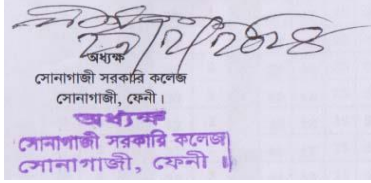 অধ্যক্ষ
সোনাগাজী সরকারি কলেজ
সোনাগাজী, ফেনী।
অধ্যক্ষ
সোনাগাজী সরকারি কলেজ
সোনাগাজী, ফেনী ॥